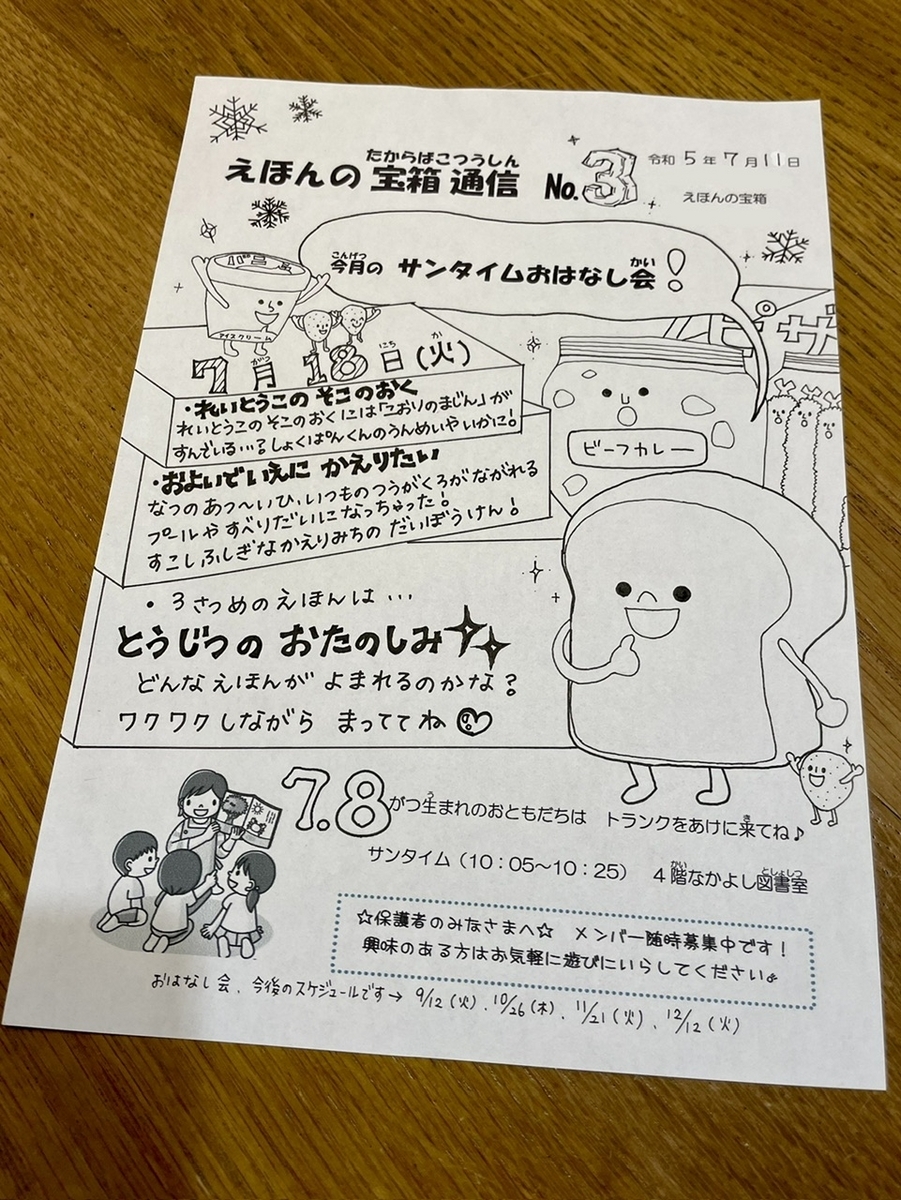 令和5年7月11日
たからばこつうしん
えほんの 宝箱 通信 No.3
えほんの宝箱
こんげつ かい
今月の サンタイムおはなし会!
バニラ
アイスクリーム
ピザ
がつ にち か
7月18日(火)
・れいとうこの そこのおく
れいとうこの そこのおくには「こおりのまじん」が
すんでいる…?しょくぱんくんのうんめいやいかに!
・およいでいえに かえりたい
なつのあっ〜いひ、いつものつうがくろがながれる
プールや すべりだいになっちゃった!
すこしふしぎなかえりみちの だいぼうけん!
ビーフカレー
・3さつめのえほんは…
とうじつの おたのしみ
どんなえほんが よまれるのかな?
ワクワクしながら まっててね
う き
7.8がつ生まれのおともだちは トランクをあけに来てね♪
かい としょしつ
サンタイム(10:05〜10:25) 4階なかよし図書室
☆保護者のみなさまへ☆ メンバー随時募集中です!
興味のある方はお気軽に遊びにいらしてください。
おはなし会、今後のスケジュールです→ 9/12(火)、10/26(木)、11/21(火)、12/12(火)